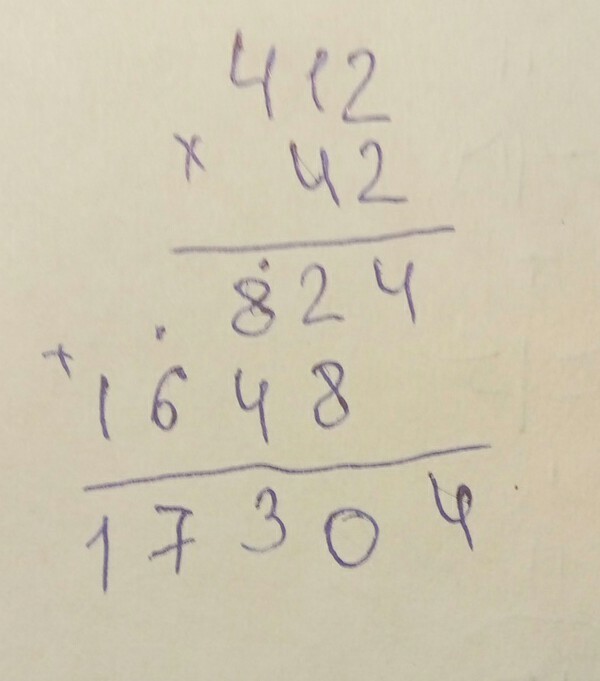 412
× 42
824
+ 1648
17304